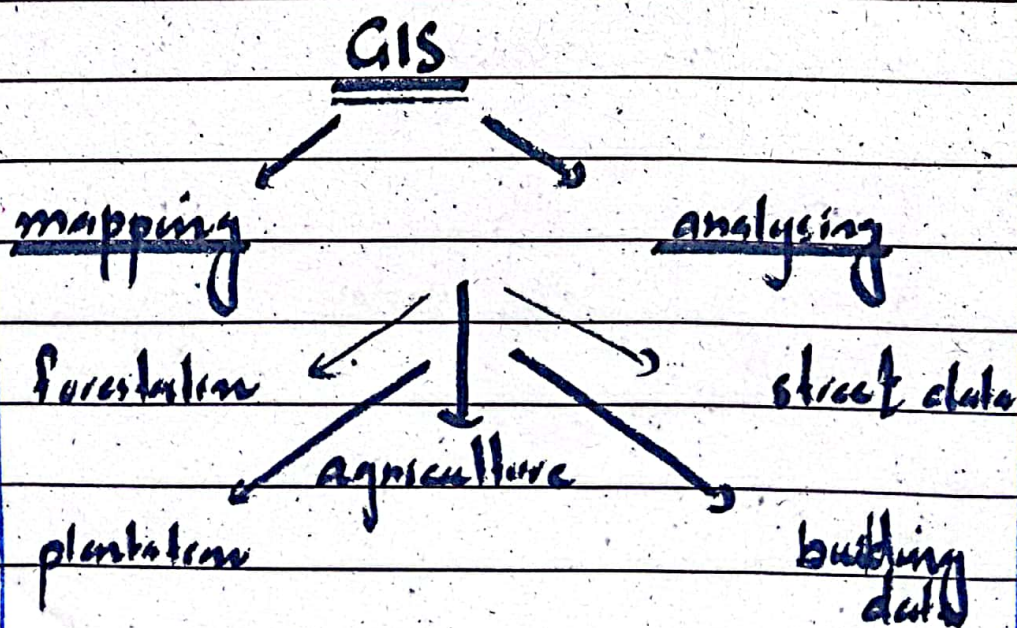 GIS
mapping analysing
forestation street data
agriculture
plantation building
data